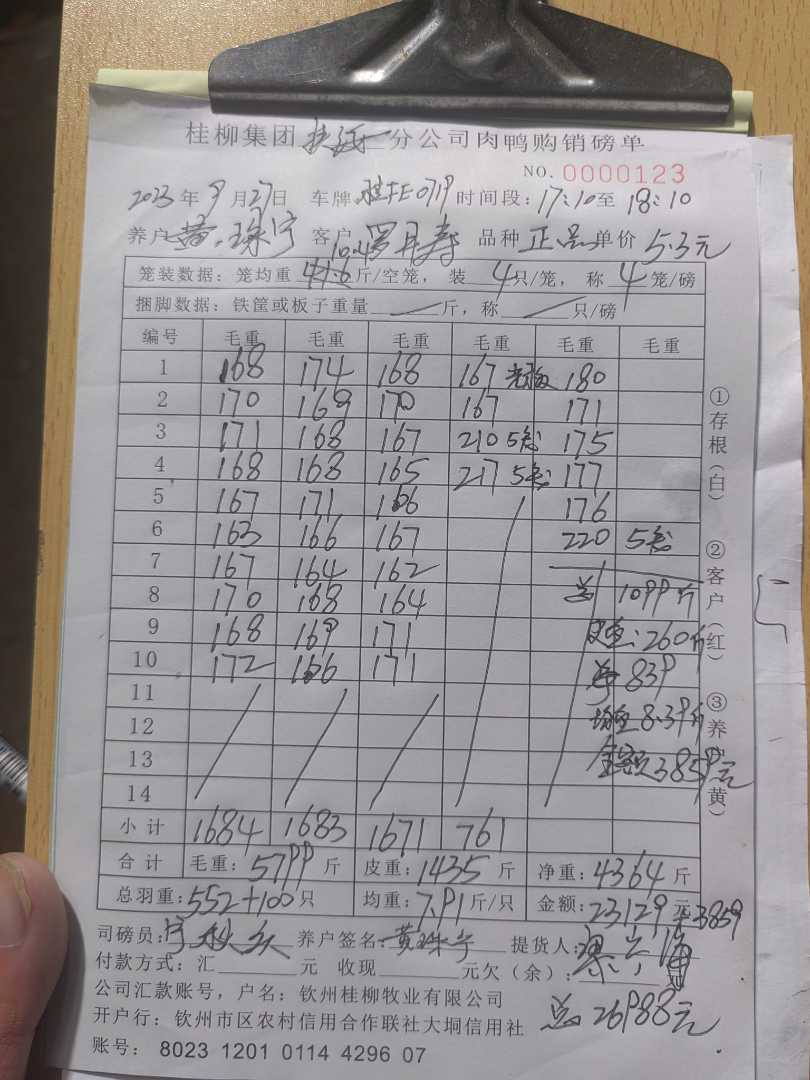 桂柳集团 分公司肉鸭购销磅单
NO. 0000123
2023年9月27日 车牌 桂FE0719 时间段:17:10至18:10
养户 黄珠宁 客户 罗月寿 品种 正品 单价 5.3元
10.4
笼装数据:笼均重 41.6 斤/空笼, 装 4 只/笼, 称 4 笼/磅
捆脚数据:铁筐或板子重量 斤,称 只/磅
编号 毛重 毛重 毛重 毛重 毛重 毛重
1 168 174 168 167 180
2 170 169 170 167 171
3 171 168 167 210 5笼 175
4 168 168 165 217 5笼 177
5 167 171 166 176
6 163 166 167 220 5笼
7 167 164 162
8 170 168 164 总 1099斤
9 168 169 171 皮重:260斤
10 172 166 171 净 839
11
12 均重 8.39斤
13 金额 3859元
14
小计 1684 1683 1671 761
合计 毛重:5799斤 皮重:1435斤 净重:4364斤
总羽重:552+100只 均重:7.91斤/只 金额:23129元+3859
司磅员: 养户签名:黄珠宁 提货人:
付款方式:汇 元 收现 元欠(余):
公司汇款账号,户名:钦州桂柳牧业有限公司
总 26988元
开户行:钦州市区农村信用合作联社大垌信用社
账号: 8023 1201 0114 4296 07
①存根(白)
②客户(红)
③养 黄)